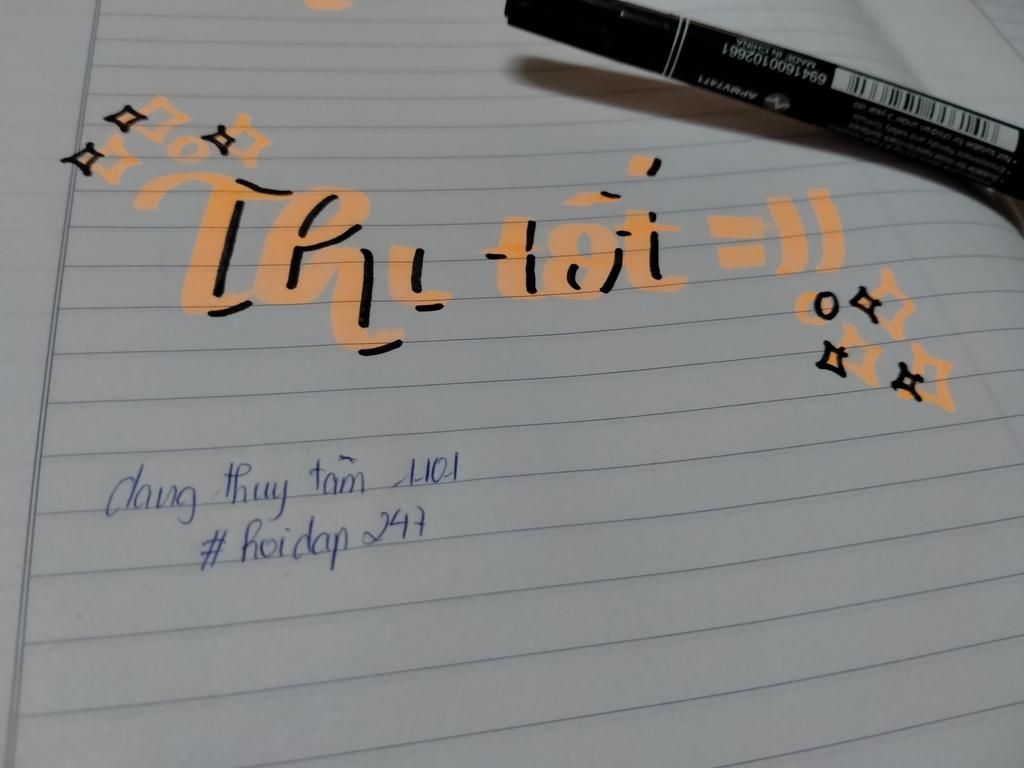 Thi tốt =))
dang thuy tâm 1101
# hoidap 247
6941600102661
MADE IN CHINA
APMV7471